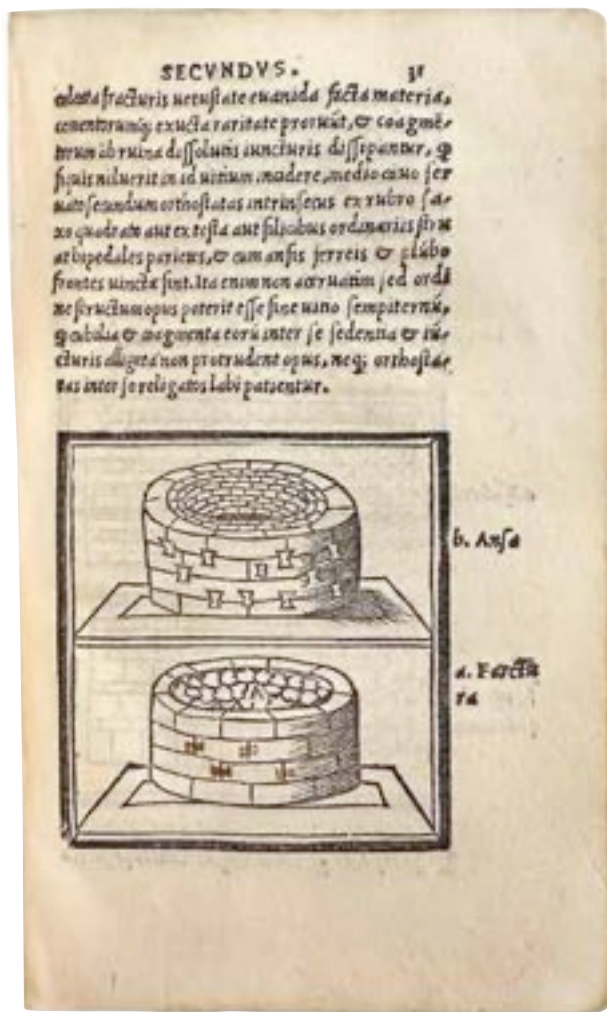 SECVNDVS. 31
fracturis uetustate euanida facta materia,
cementorumq; exucta raritate proruũt, & coagmẽ-
torum ab ruina dissolutis iuncturis dissipantur, ꝙ
siquis noluerit in id uitium incidere, medio cauo ser
uato secundum orthostatas intrinsecus ex rubro sa-
xo quadrato aut ex testa aut silicibus ordinariis stru
at bipedales parietes, & cum ansis ferreis & plũbo
frontes uinctæ sint. Ita enim non aceruatim sed ordi
ne structum opus poterit esse sine uitio sempiternũ,
ꝙ cubilia & coagmenta eorũ inter se sedentia & iũ-
cturis alligata non protrudent opus, neq; orthosta-
tas inter se religatos labi patientur.
b. Ansa
a. Farctũ
ra